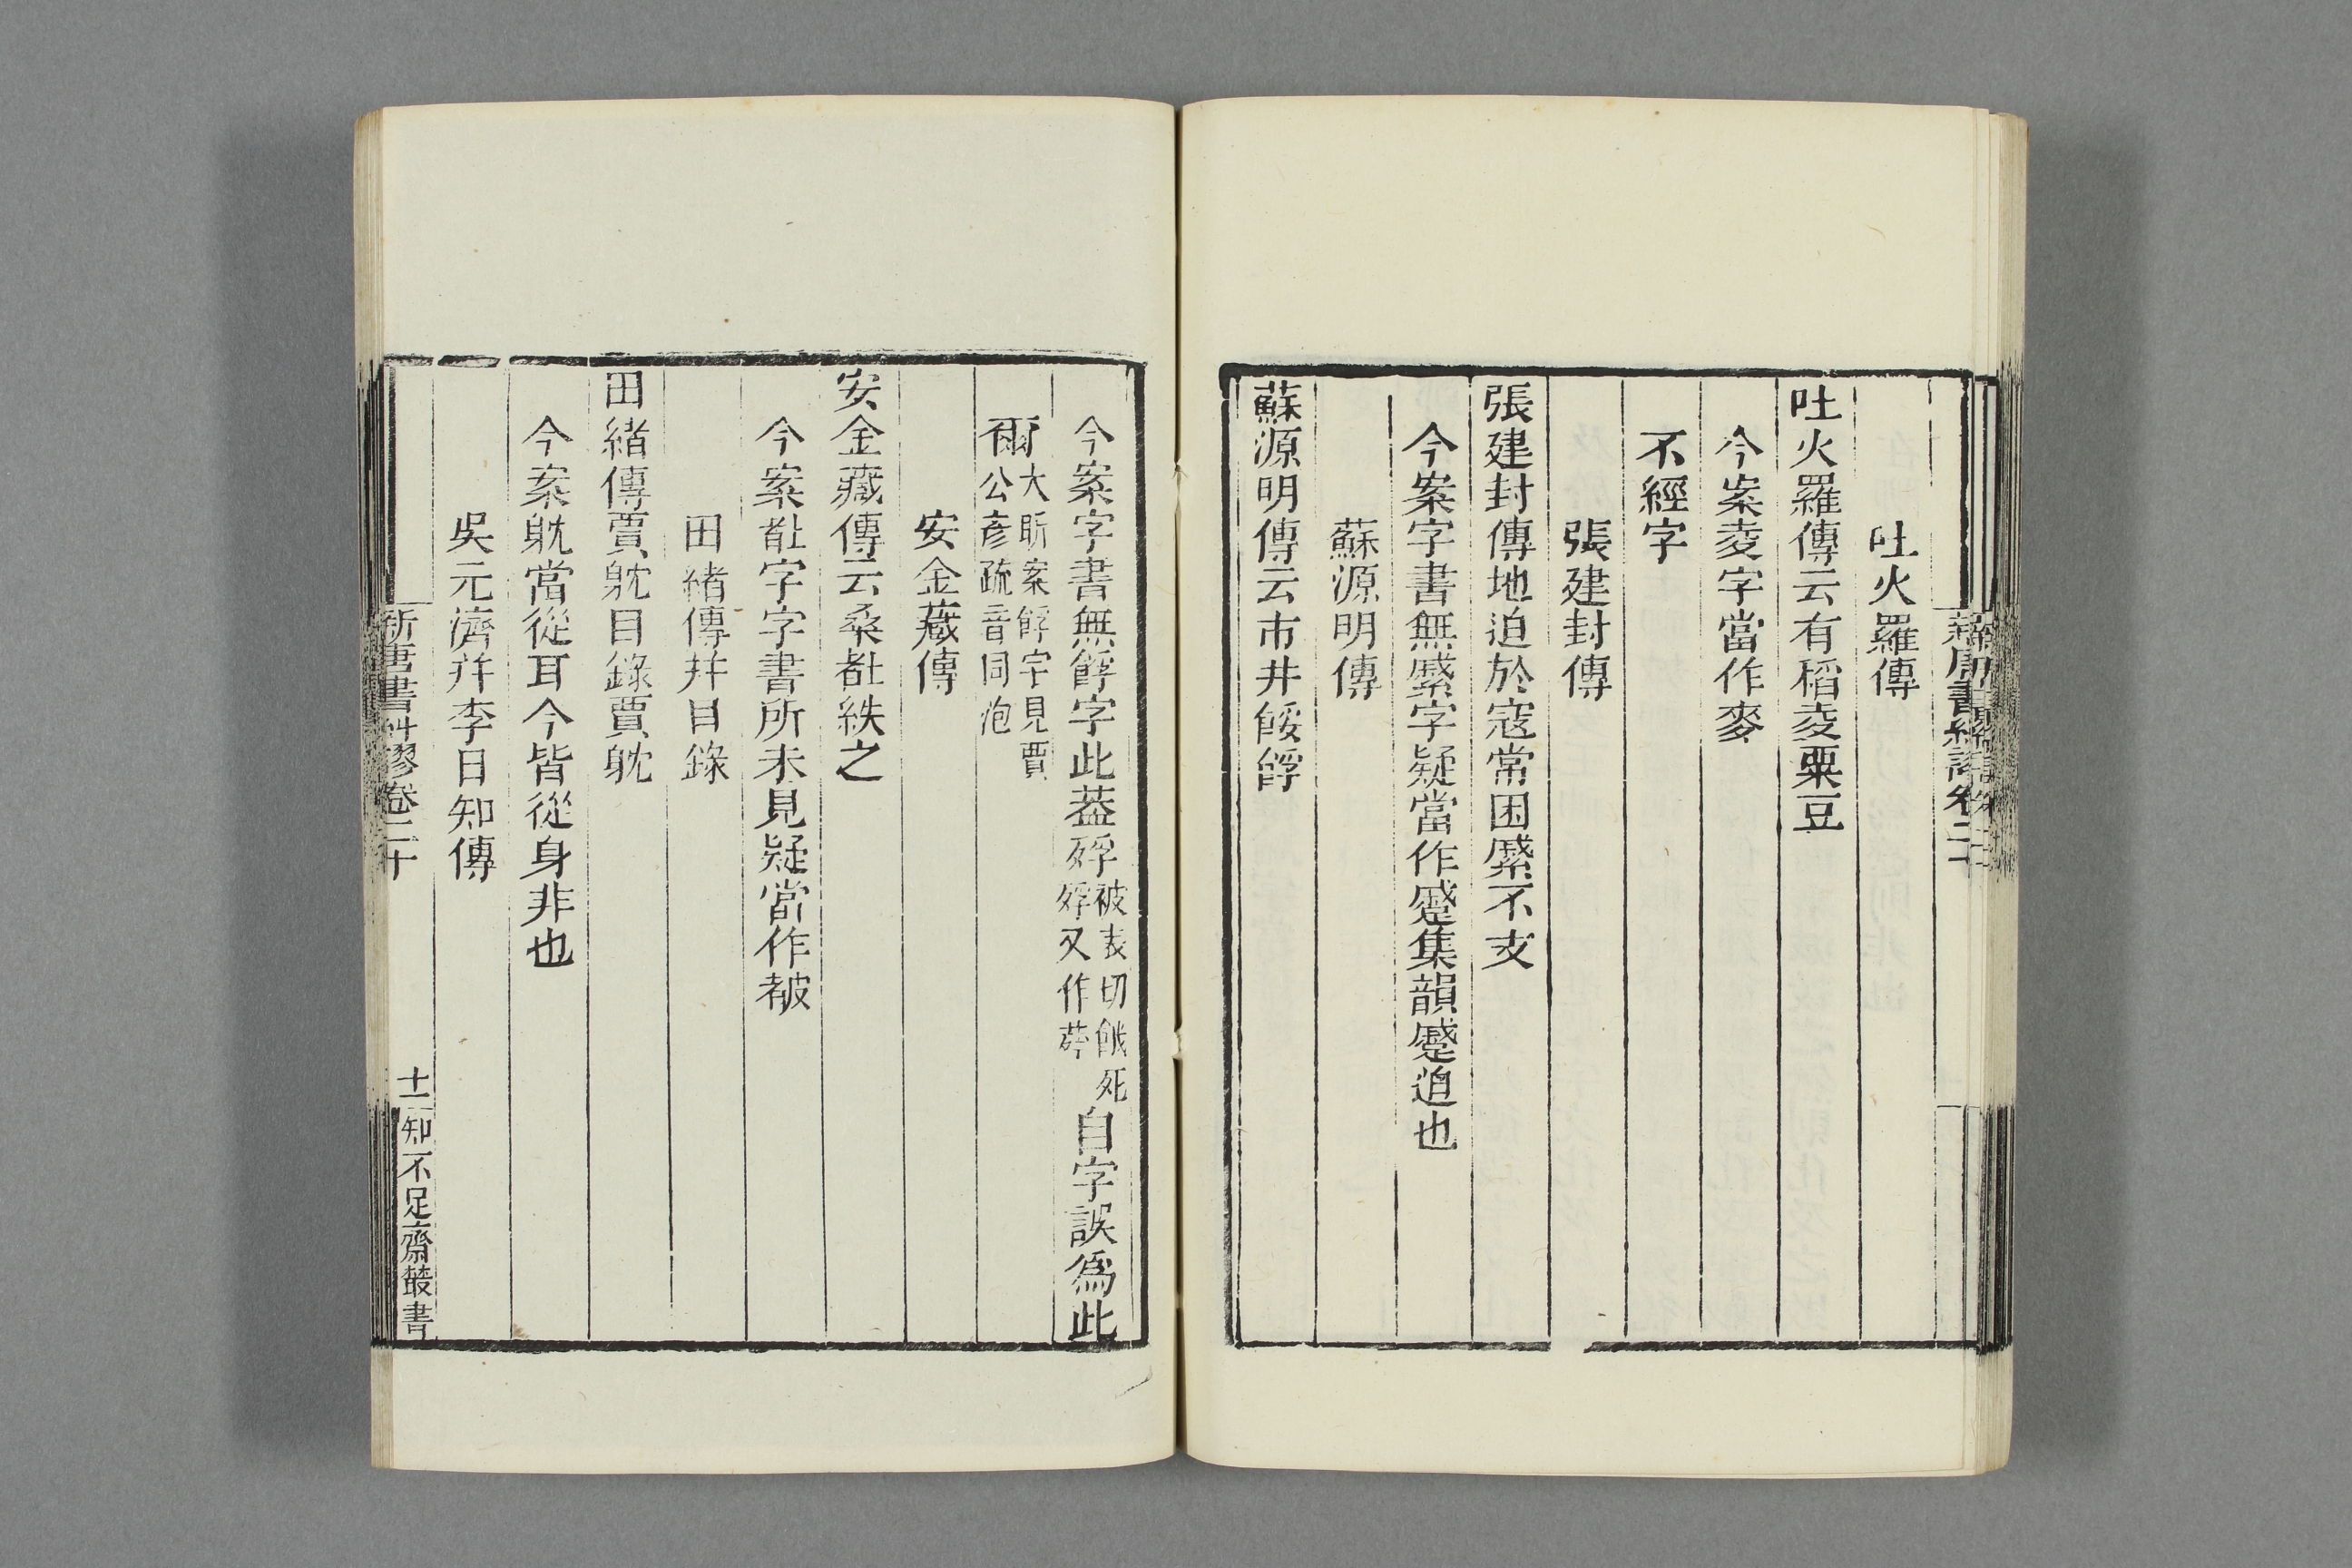 吐火羅傳
吐火羅傳云有稻𡕢粟豆
今案𡕢字當作麥
不經字
張建封傳
張建封傳地迫於寇常困㦣不支
今案字書無㦣字疑當作蹙集韻蹙迫也
蘇源明傳
蘇源明傳云市井餒䬏
今案字書無䬏字此葢殍被表切餓死殍又作莩自字誤爲此
爾大昕案䬏字見賈公彥疏音同殍
安金藏傳
安金藏傳云桑𤿎紩之
今案𤿎字字書所未見疑當作皵
田緒傳幷目錄
田緒傳賈躭目錄賈躭
今案躭當從耳今皆從身非也
吳元濟幷李日知傳
新唐書糾謬卷二十
十一
知不足齋叢書